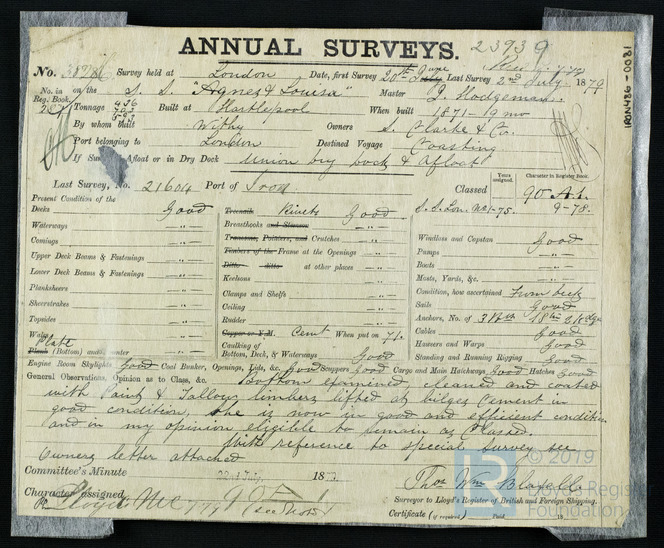 ANNUAL SURVEYS. 23939
No. Survey held at London Date, first Survey 20th June Last Survey 2nd July 1879
No. in Reg. Book on the S. S. "Agnes & Louisa" Master J. Hodgeman
Tonnage Built at Hartlepool When built 1871-19 mo
By whom built Withy Owners S. Clarke & Co.
Port belonging to London Destined Voyage Coasting
If Surveyed Afloat or in Dry Dock Union dry dock & Afloat
Years assigned. Character in Register Book.
Last Survey, No. 21604 Port of Iron Classed 90 A.1.
Present Condition of the
Decks Good Treenails Rivets Good S.S.Lon. No1-75. 9-78.
Waterways -"- Breasthooks and Sternson -"- Windlass and Capstan Good
Comings -"- Transoms, Pointers, and Crutches -"- Pumps -"-
Upper Deck Beams & Fastenings -"- Timbers of the Frame at the Openings -"- Boats -"-
Lower Deck Beams & Fastenings -"- Ditto ditto at other places -"- Masts, Yards, &c. -"-
Planksheers -"- Keelsons -"- Condition, how ascertained From deck
Sheerstrakes -"- Clamps and Shelfs -"- Sails Good
Topsides -"- Ceiling -"- Anchors, No. of
Wales -"- Rudder -"- Cables Good
Plate Copper or Y.M. Cemt When put on 71. Hawsers and Warps Good
Plank (Bottom) and Counter -"- Caulking of Bottom, Deck, & Waterways Good Standing and Running Rigging Good
Engine Room Skylights Good Coal Bunker, Openings, Lids, &c. Good Scuppers Good Cargo and Main Hatchways Good Hatches Good
General Observations, Opinion as to Class, &c. Bottom examined, cleaned and coated
with Paint & Tallow, limbers lifted at bilges Cement in
good condition, She is now in good and efficient condition
and in my opinion eligible to remain as Classed.
With reference to special Survey see
Owners letter attached
Committee's Minute July, 18
Thos Wm Blaxall
Character assigned
Surveyor to Lloyd's Register of British and Foreign Shipping.
Lloyds MC
Certificate (if required) Paid 18
© 2019
Lloyd's Register
Foundation